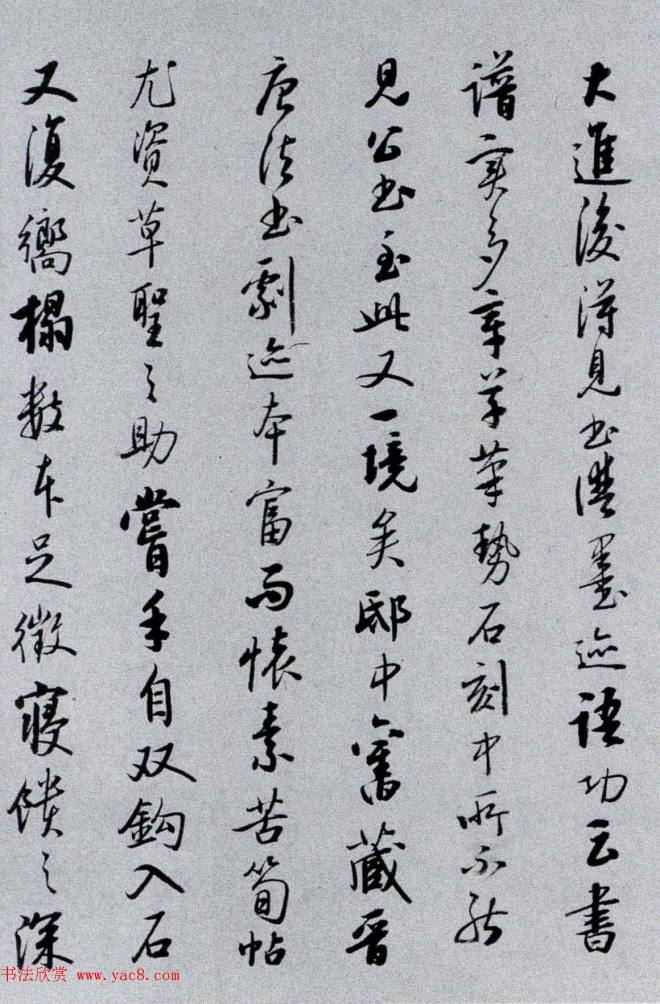 大進後得見书譜墨迹語功云書
譜實多章草筆勢石刻中所不能
見公书至此又一境矣邸中舊藏晉
唐法书劇迹本富而懷素苦筍帖
尤資草聖之助嘗手自双鈎入石
又復嚮榻數本足徵寢饋之深
书法欣赏 www.yac8.com